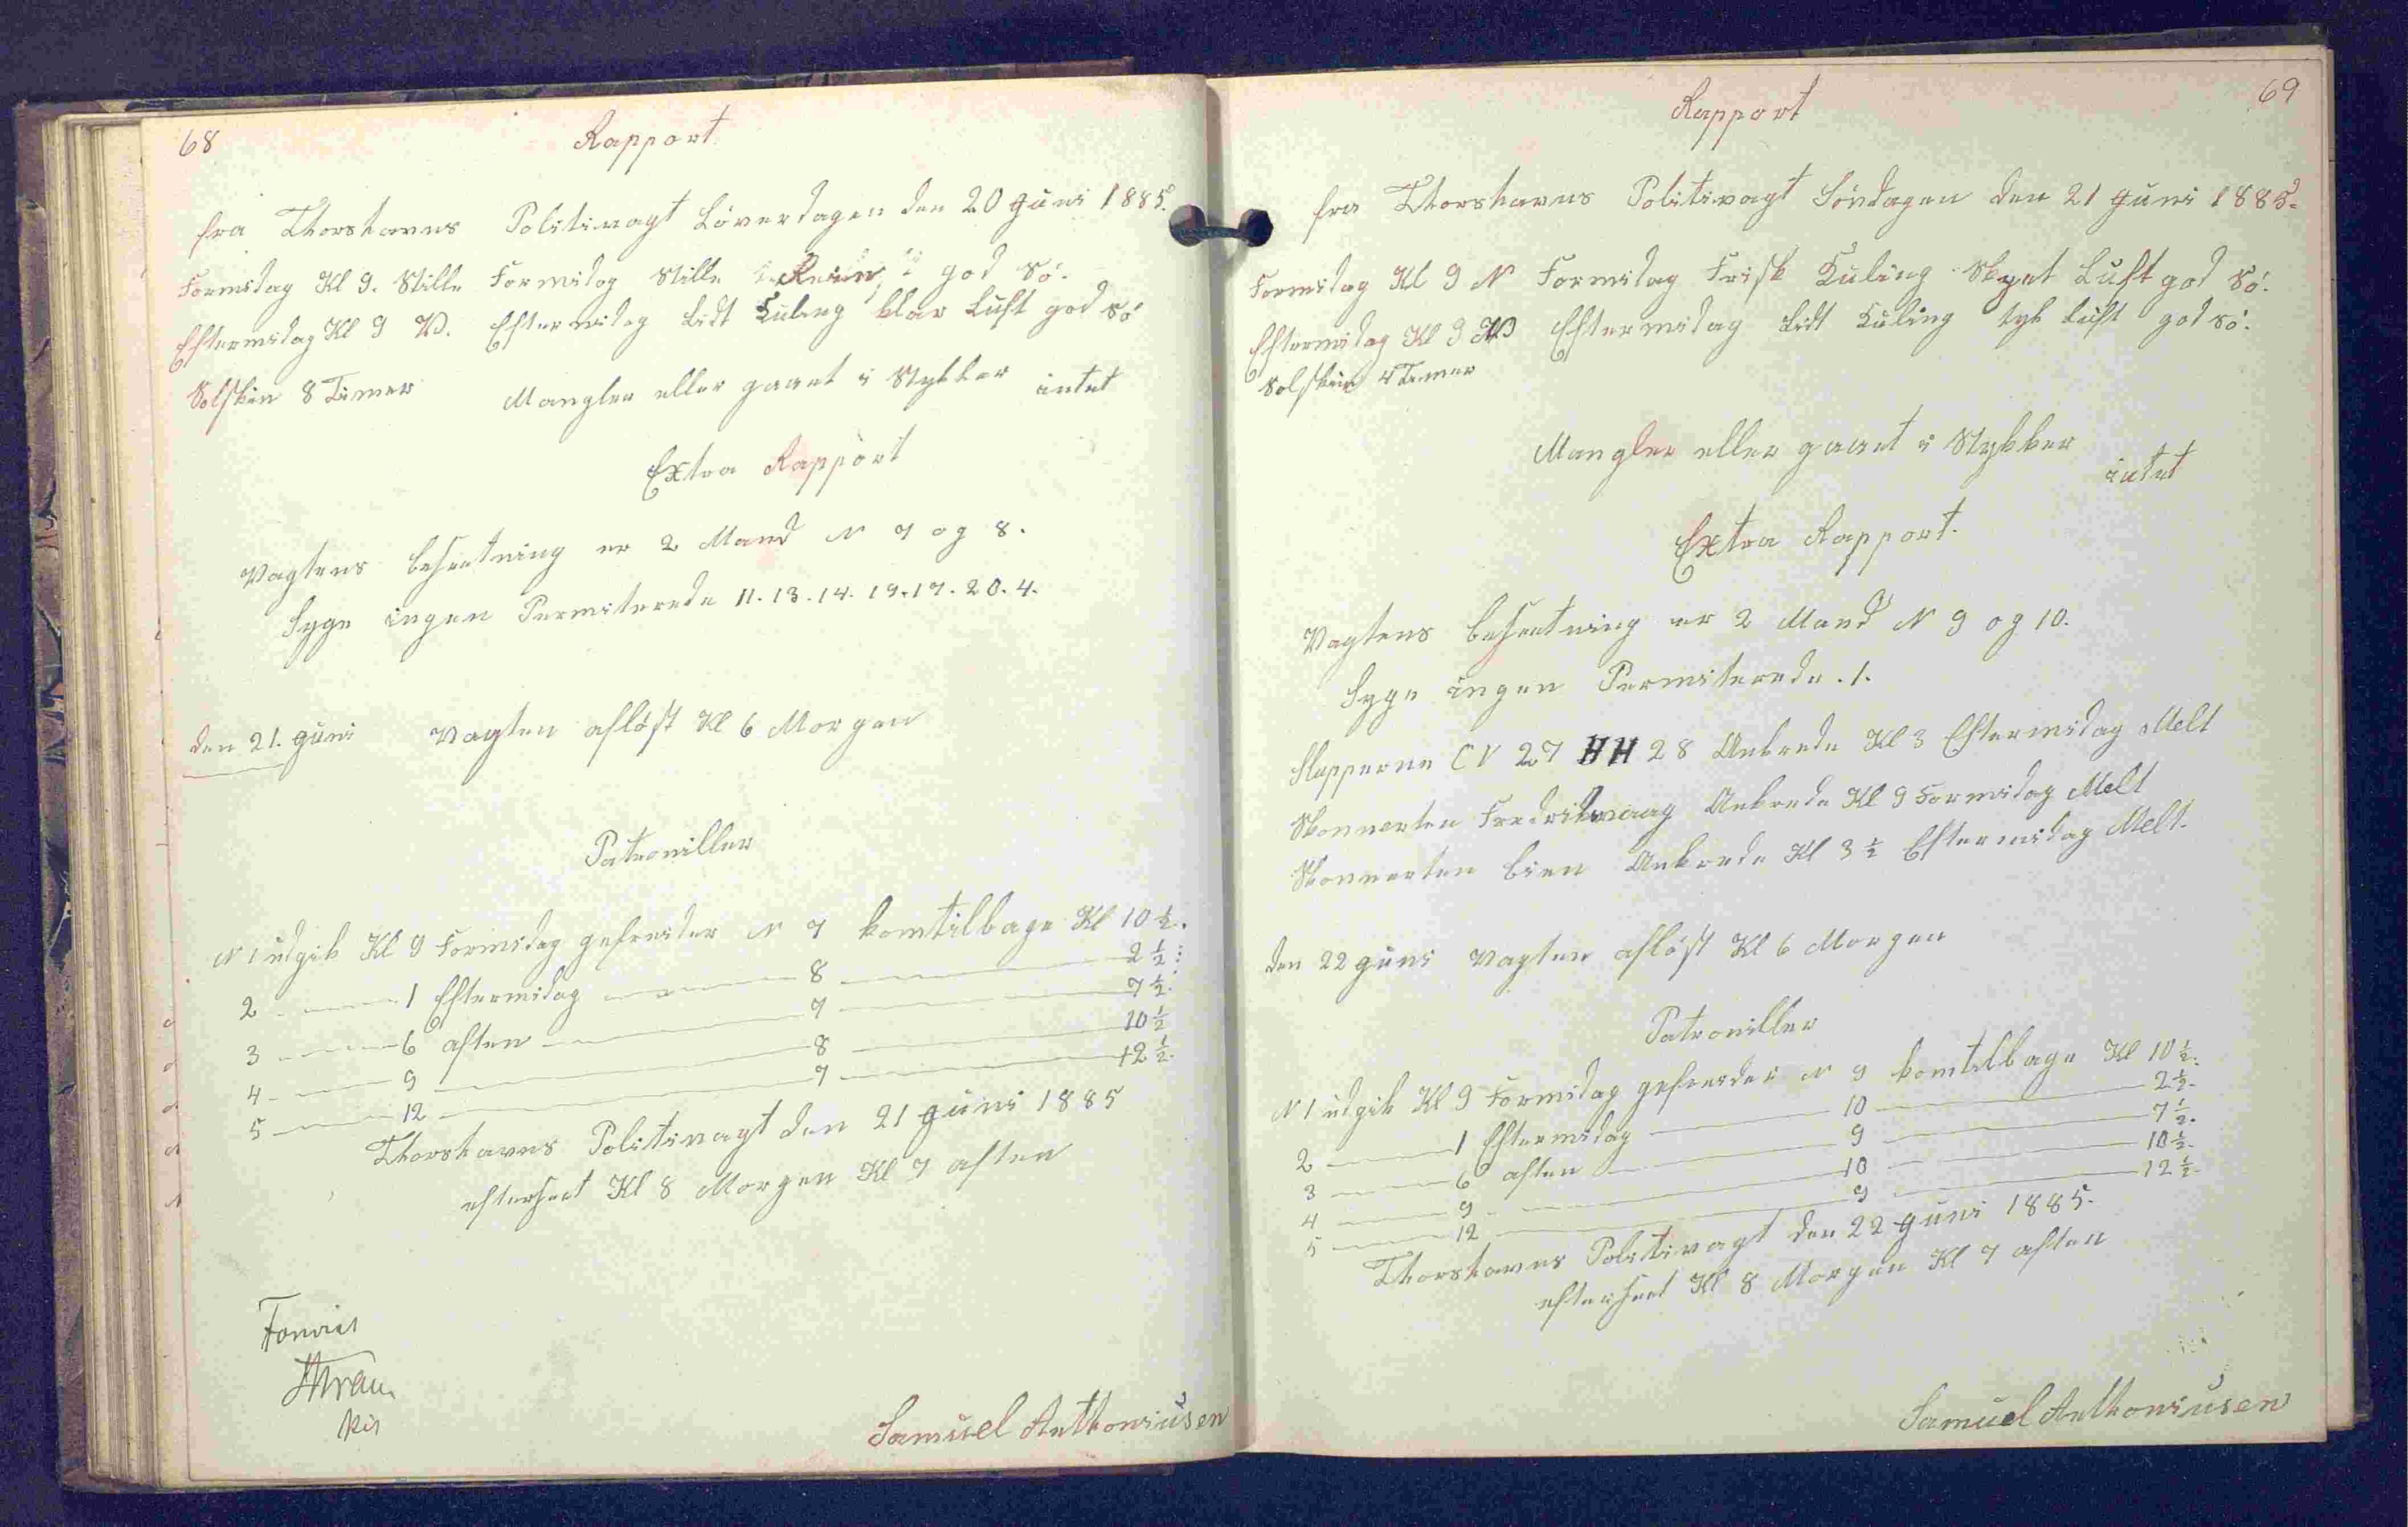 68
Rapport
fra Thorshavns Politivagt Löverdagen den 20 Juni 1885.
Formidag Kl 9. Stille Formidag Stille god Sö.
Eftermidag Kl 9 V. Eftermidag Lidt Kuling klar Luft god Sö
Solskin 8 Timer Mangler eller gaaet i Stykker intet
Extra Rapport
Vagtens besætning er 2 Mand N 7 og 8.
Syge ingen Permiterede 11. 13. 14. 19. 17. 20. 4.
den 21. Juni Vagten aflöst Kl 6 Morgen
Patrouiller
N 1 udgik Kl 9 Formidag gefreider N 7 kom tilbage Kl 10 ½.
2 — 1 Eftermidag — 8 — 2 ½
3 — 6 aften — 7 — 7 ½
4 — 9 — 8 — 10 ½
5 — 12 — 7 — 12 ½
Thorshavns Politivagt den 21 Juni 1885
efterseet Kl 8 Morgen Kl 7 aften
Samuel Anthoniusen
69
Rapport
fra Thorshavns Politivagt Söndagen den 21 Juni 1885.
Formidag Kl 9 N Formidag Frisk Kuling Skyet Luft god Sö.
Eftermidag Kl 9 NV Eftermidag Lidt Kuling tyk Luft god Sö.
Solskin 4 Timer
Mangler eller gaaet i Stykker intet
Extra Rapport.
Vagtens besætning er 2 Mand N 9 og 10.
Syge ingen Permiterede. 1.
Slupperne CV 27 HH 28 Ankrede Kl 3 Eftermidag Melt
Skonnerten Fredrikvaag Ankrede Kl 9 Formidag Melt
Skonnerten bien Ankrede Kl 3 ½ Eftermidag Melt.
den 22 Juni Vagten aflöst Kl 6 Morgen
Patrouiller
N 1 udgik Kl 9 Formidag gefreider N 9 kom tilbage Kl 10 ½.
2 — 1 Eftermidag — 10 — 2 ½.
3 — 6 aften — 9 — 7 ½.
4 — 9 — 10 — 10 ½.
5 — 12 — 9 — 12 ½.
Thorshavns Politivagt den 22 Juni 1885.
efterseet Kl 8 Morgen Kl 7 aften
Samuel Anthoniusen